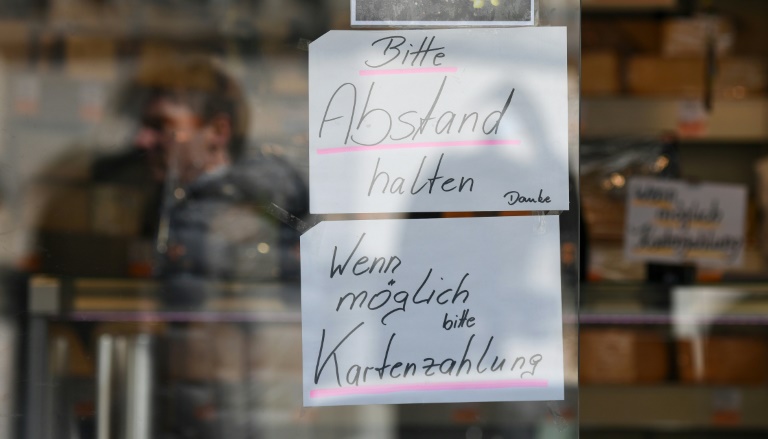 Bitte
Abstand
halten
Danke
Wenn
möglich
bitte
Kartenzahlung
Wenn
möglich
Kartenzahlung